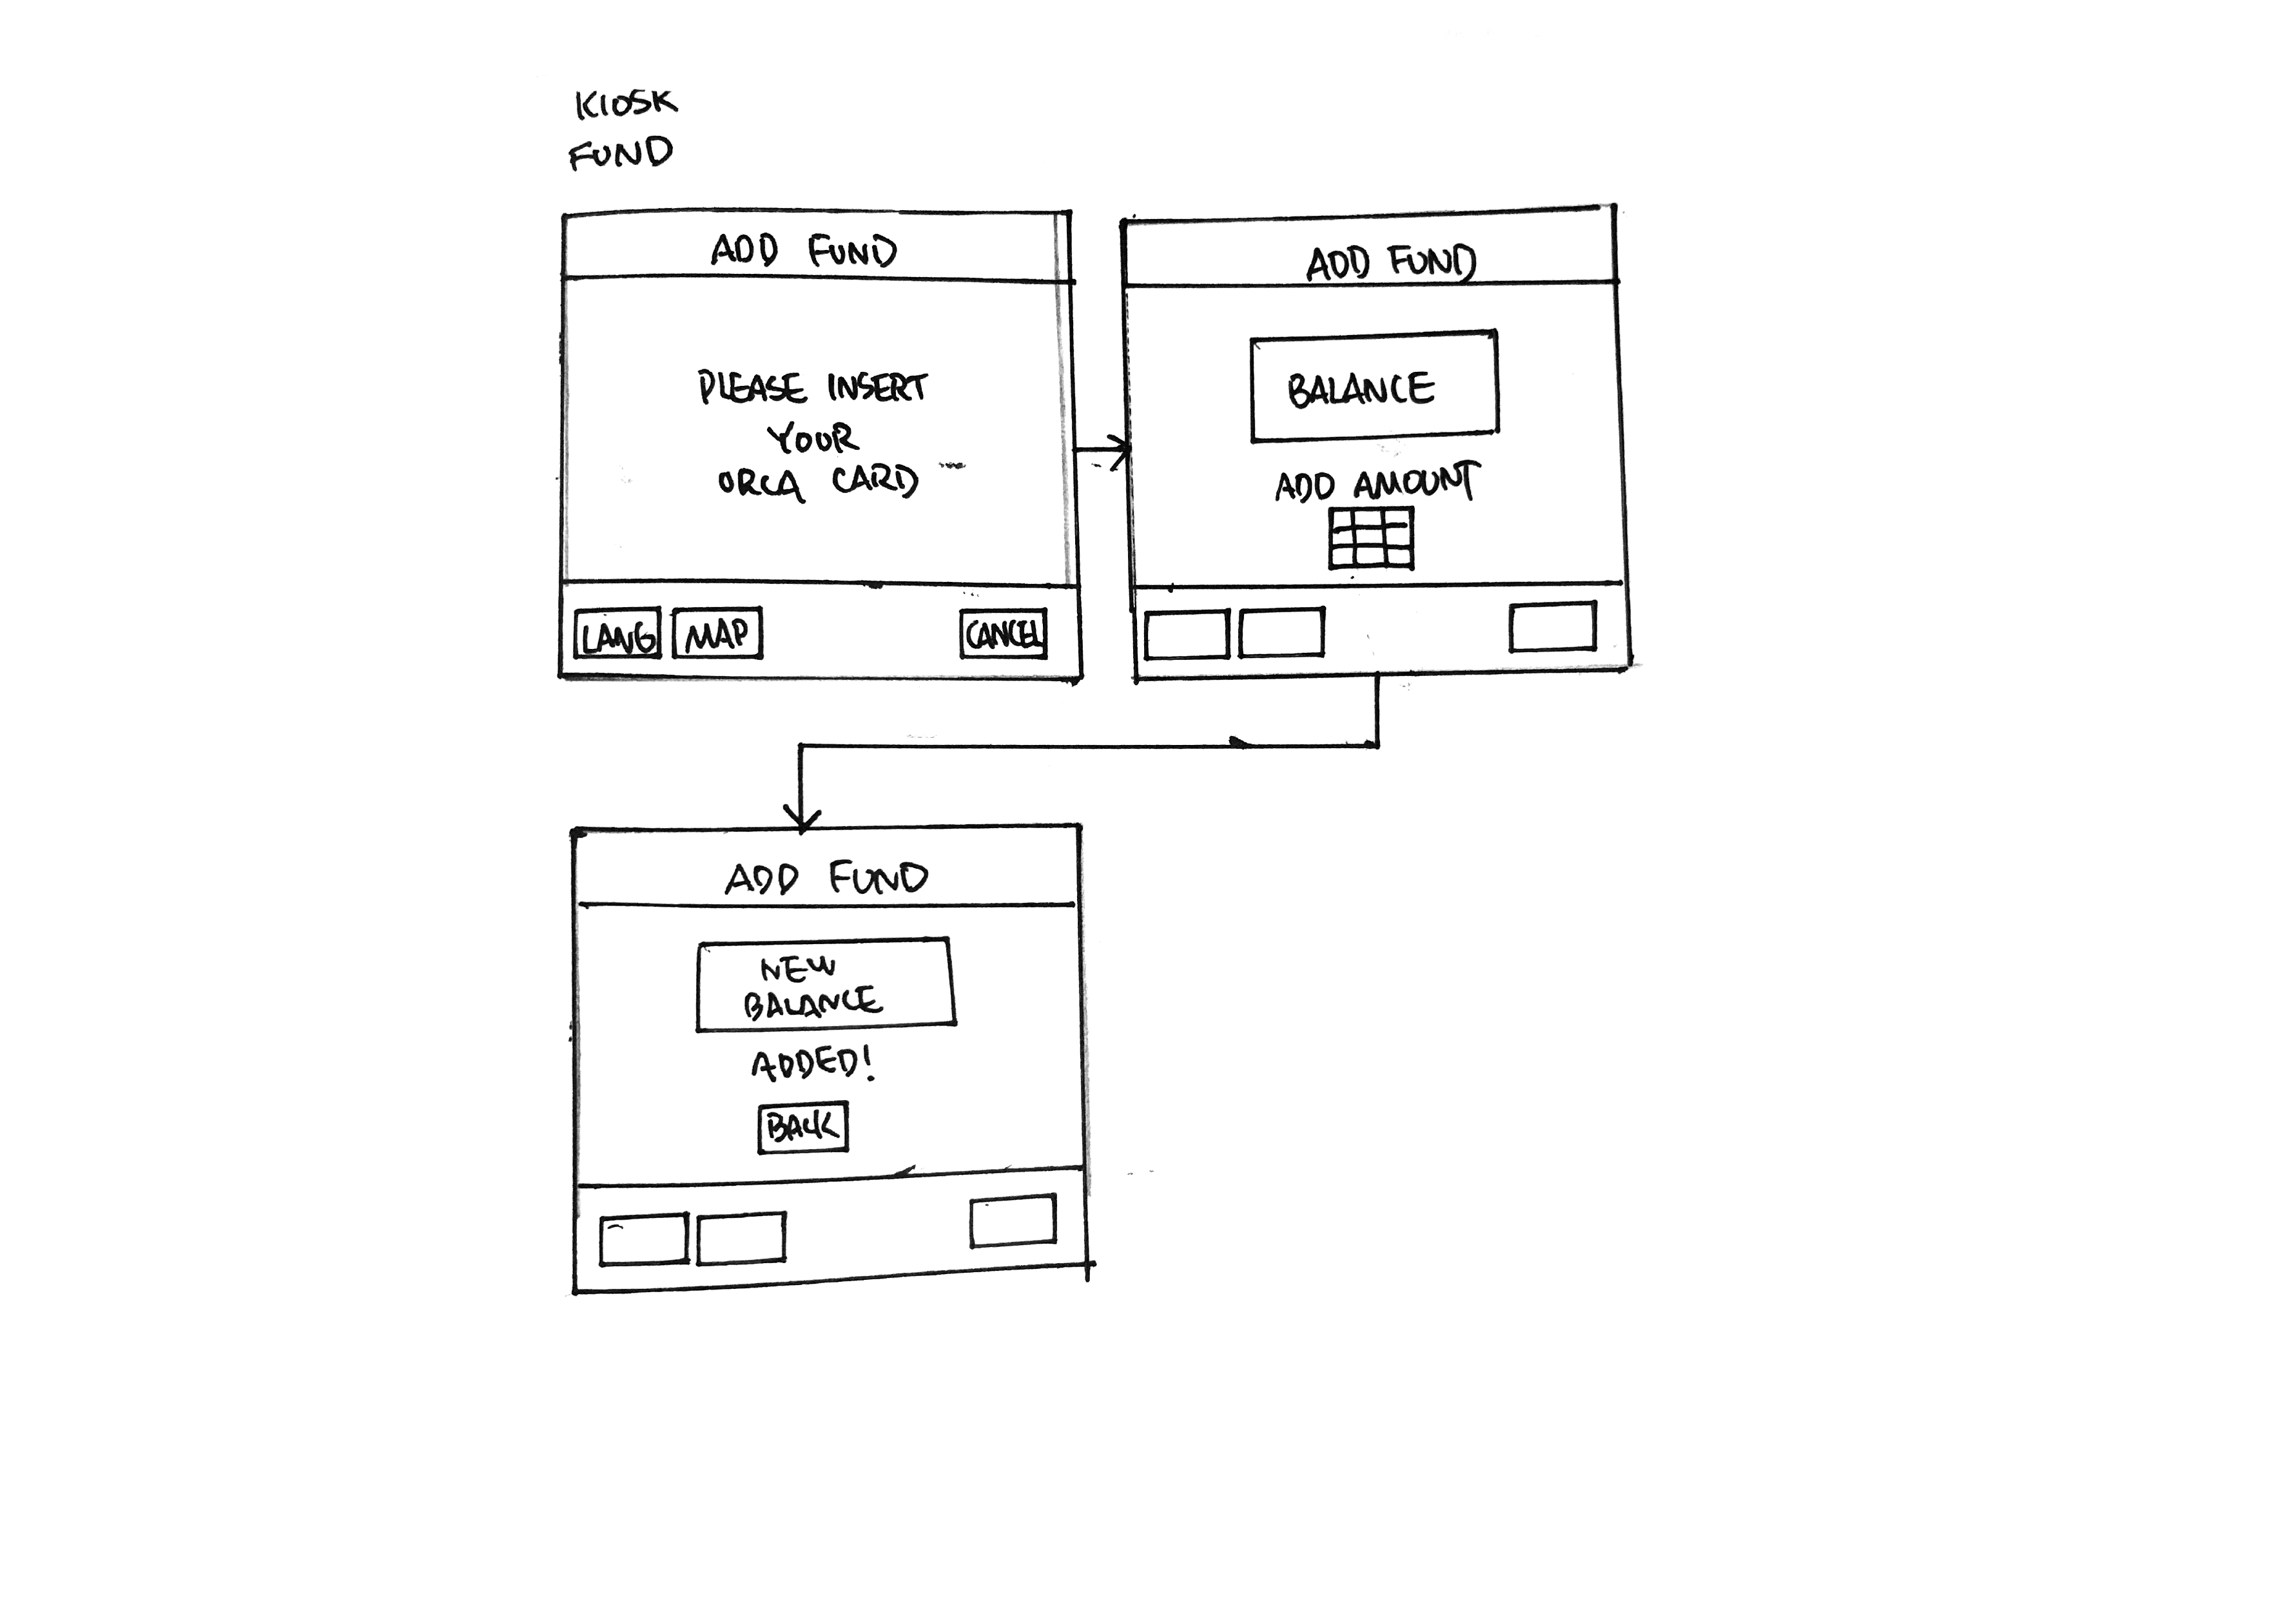 KIOSK
FUND
ADD FUND
PLEASE INSERT
YOUR
ORCA CARD
LANG MAP CANCEL
ADD FUND
BALANCE
ADD AMOUNT
ADD FUND
NEW
BALANCE
ADDED!
BACK